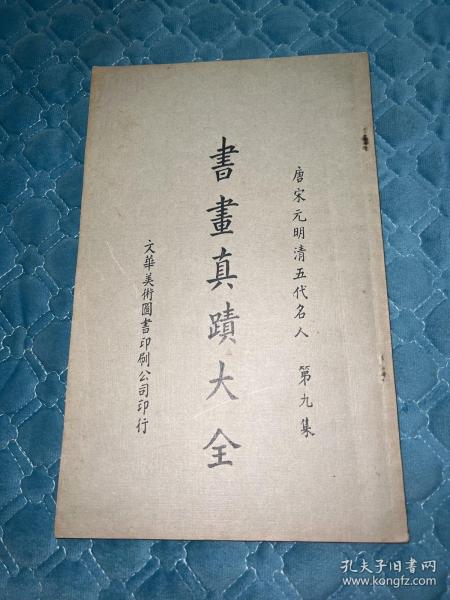 唐宋元明清五代名人 第九集
書畫真蹟大全
文華美術圖書印刷公司印行
孔夫子旧书网
www.kongfz.com